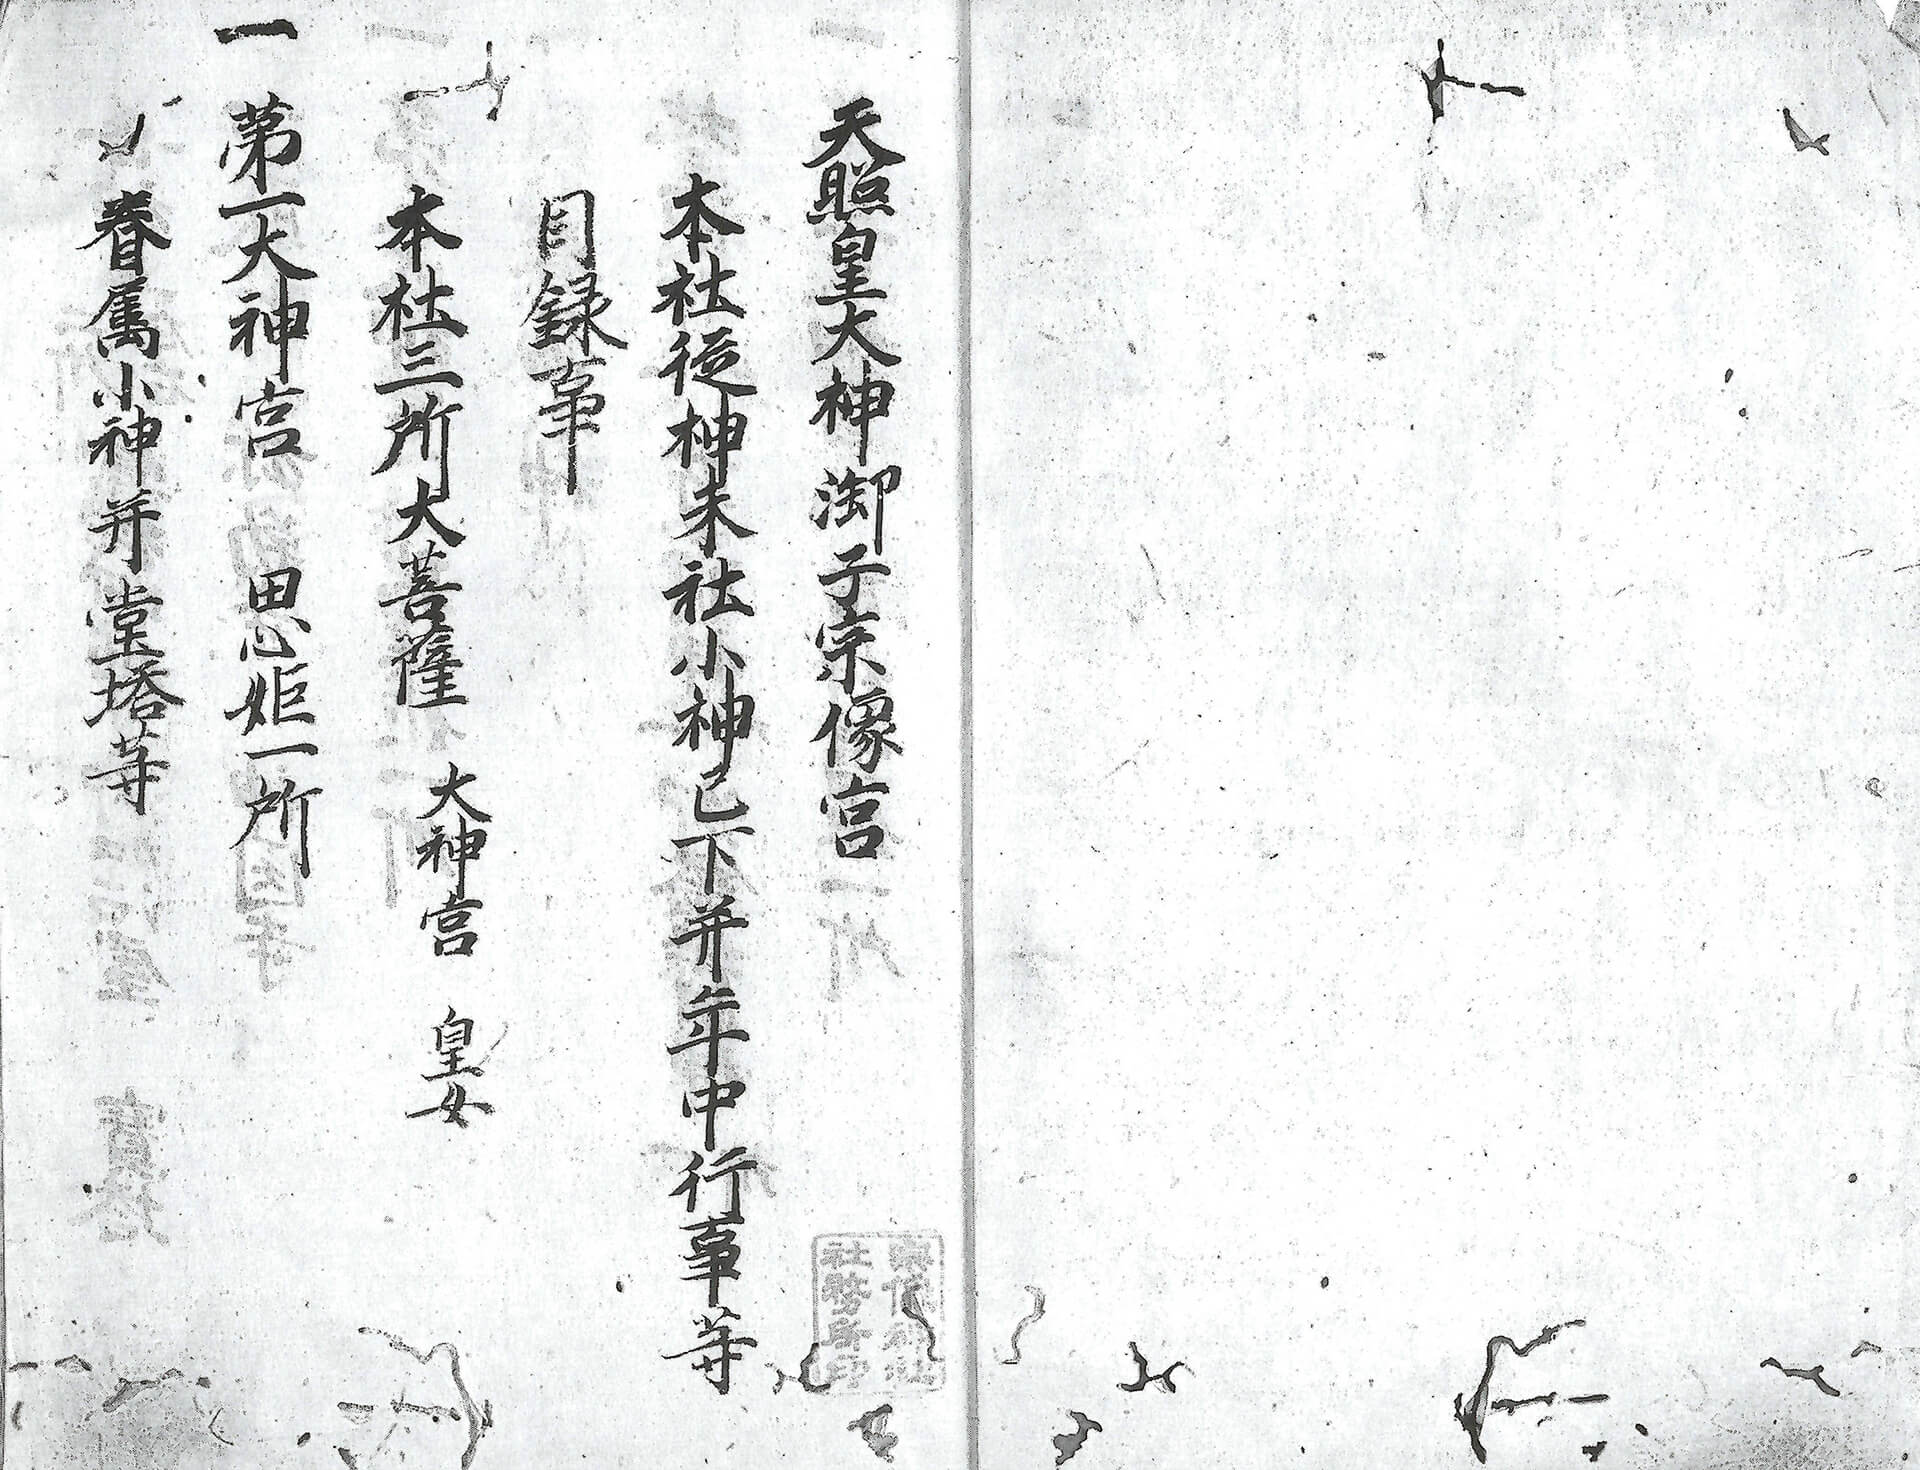 天照皇大神御子宗像宮
本社従神末社小神已下并年中行事等
目録事
本社三所大菩薩 大神宮 皇女
一 第一大神宮 田心姫一所
眷属小神并堂塔等
宗像神社
社務所印